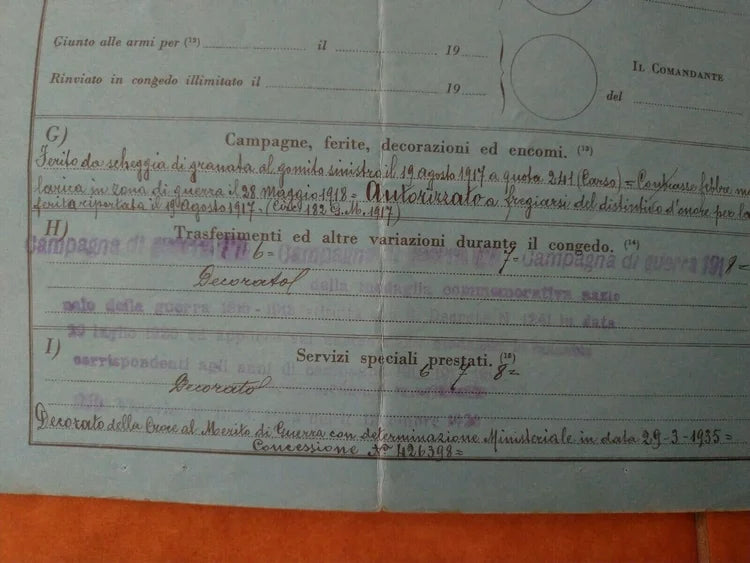 Giunto alle armi per (12) il 19
Rinviato in congedo illimitato il 19
IL COMANDANTE
del
G)
Campagne, ferite, decorazioni ed encomi. (13)
Ferito da scheggia di granata al gomito sinistro il 19 agosto 1917 a quota 241 (Carso) = Contrasse febbre ma
larica in zona di guerra il 28 Maggio 1918 = Autorizzato a fregiarsi del distintivo d'onore per la
ferita riportata il 19 Agosto 1917 - (Circ. 182 G. M. 1917)
H)
Trasferimenti ed altre variazioni durante il congedo. (14)
Campagna di guerra 6= Campagna di guerra 7= Campagna di guerra 1918=
Decorato della medaglia commemorativa nazio
nale della guerra in data
I)
Servizi speciali prestati. (15)
corrispondenti agli anni di 6 7 8=
Decorato
Decorato della Croce al Merito di Guerra con determinazione Ministeriale in data 29-3-1935=
Concessione No 426398=